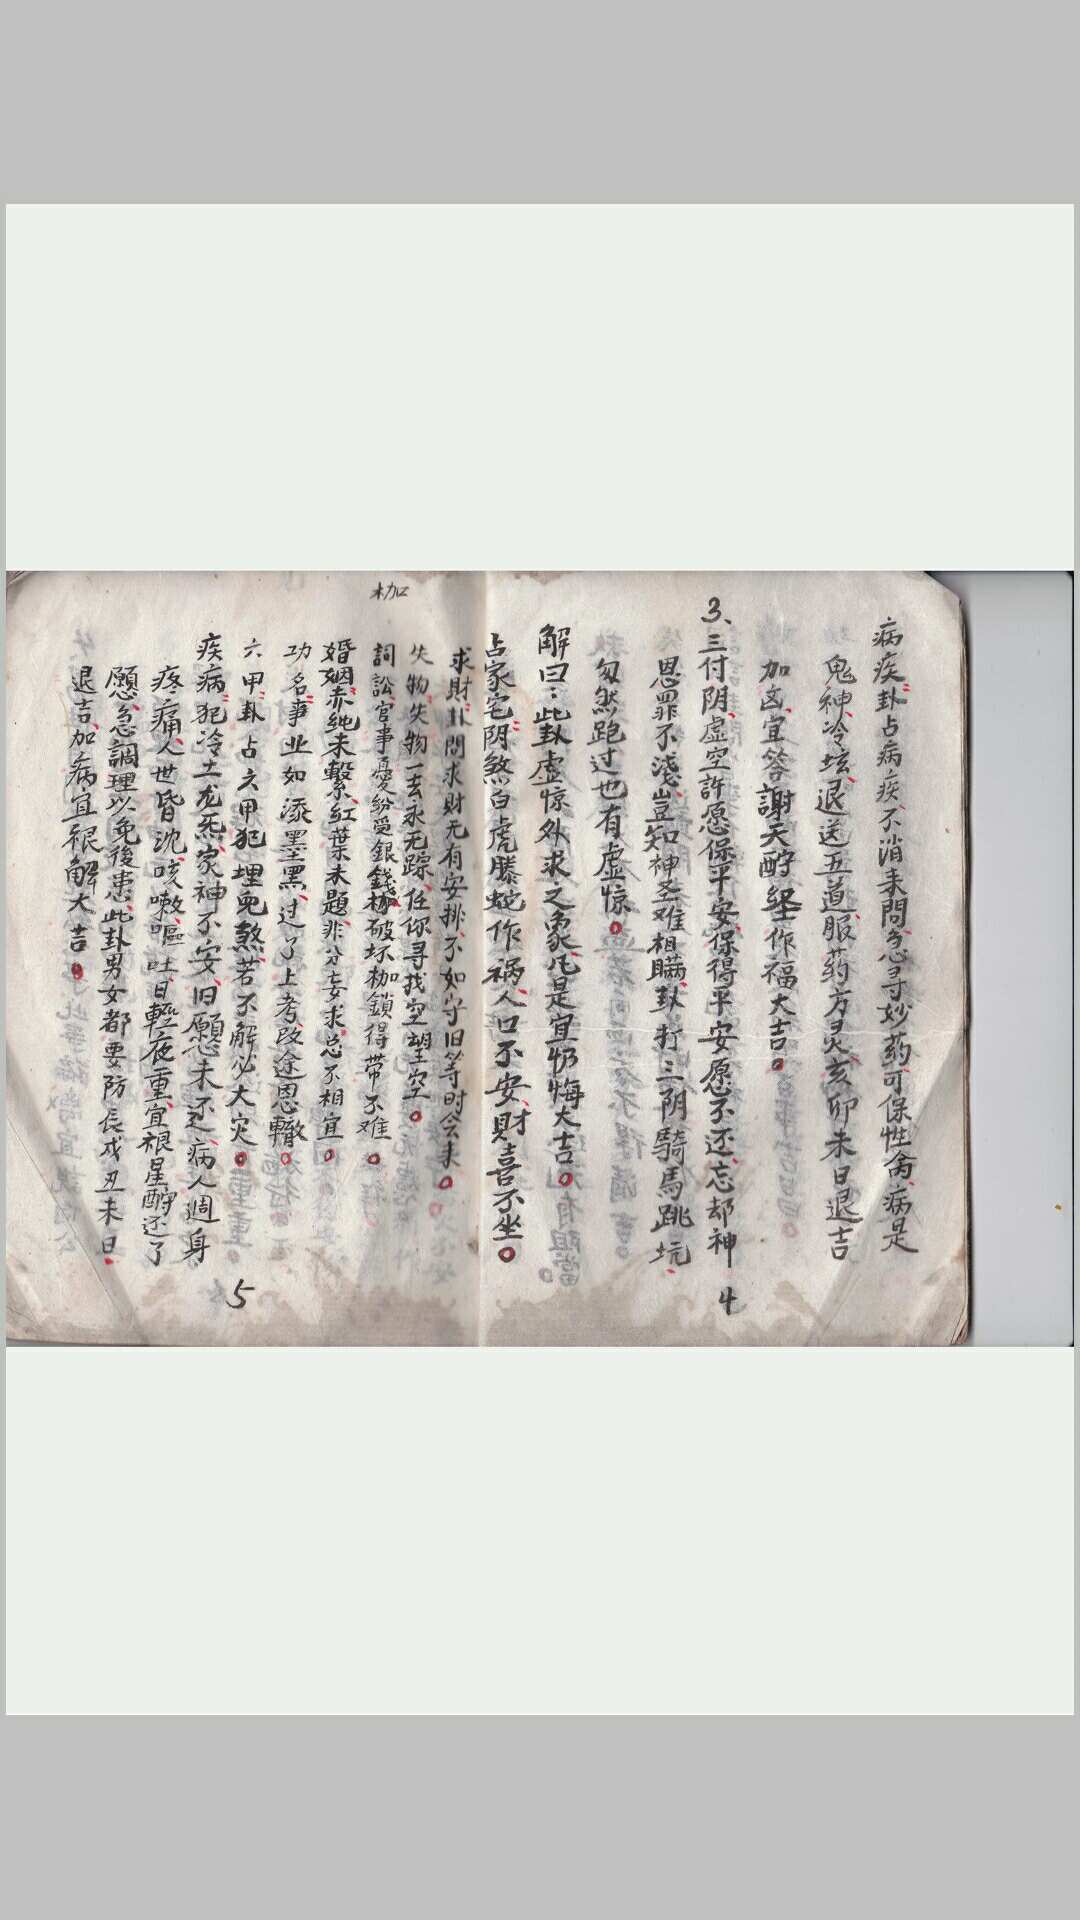 病疾卦占病疾、不消来問、急寻妙药可保性禽、病是
鬼神、冷坛、退送五道、服药方灵、亥卯未日退吉
加凶、宜答謝天酧経、作福大吉。
3、三付阴、虚空許愿保平安、保得平安愿不还、忘却神
恩罪不淺、豈知神圣难相瞞、卦打三阴騎馬跳坑、
匆然跑过也有虚惊。
4
解曰：此卦虚惊外求之象、凡是宜忏悔大吉。
占家宅、阴煞白虎騰蛇作祸、人口不安、財喜不坐。
求財卦問求財无有安排、不如守旧等时会来。
失物、失物一去永无踪、任你寻找空望空。
詞訟、官事憂紛受銀錢破坏枷鎖得带不难。
枷
婚姻、赤绳未繫、紅葉未題、非分妄求、总不相宜。
功名事业如添墨黑、过了上考、改途恩轍。
六甲卦占六甲犯埋兜煞、若不解必大灾。
疾病、犯冷土龙炁、家神不安、旧願未还、病人週身
疼痛、人世昏沈、咳嗽、嘔吐、日輕夜重、宜禳星酧还了
願、急調理以免後患、此卦男女都要防辰戌丑未日、
退吉、加病宜禳解大吉。
5